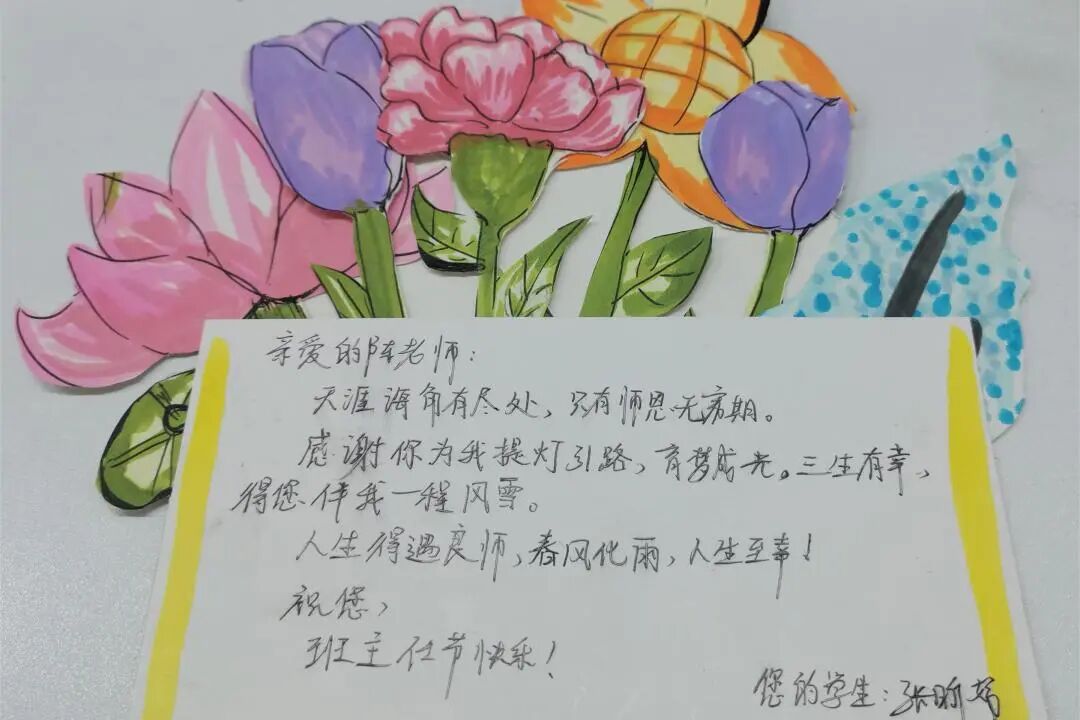 亲爱的陈老师：
天涯海角有尽处，只有师恩无穷期。
感谢你为我提灯引路，育梦成光。三生有幸，
得您伴我一程风雪。
人生得遇良师，春风化雨，人生至幸！
祝您，
班主任节快乐！
您的学生：张